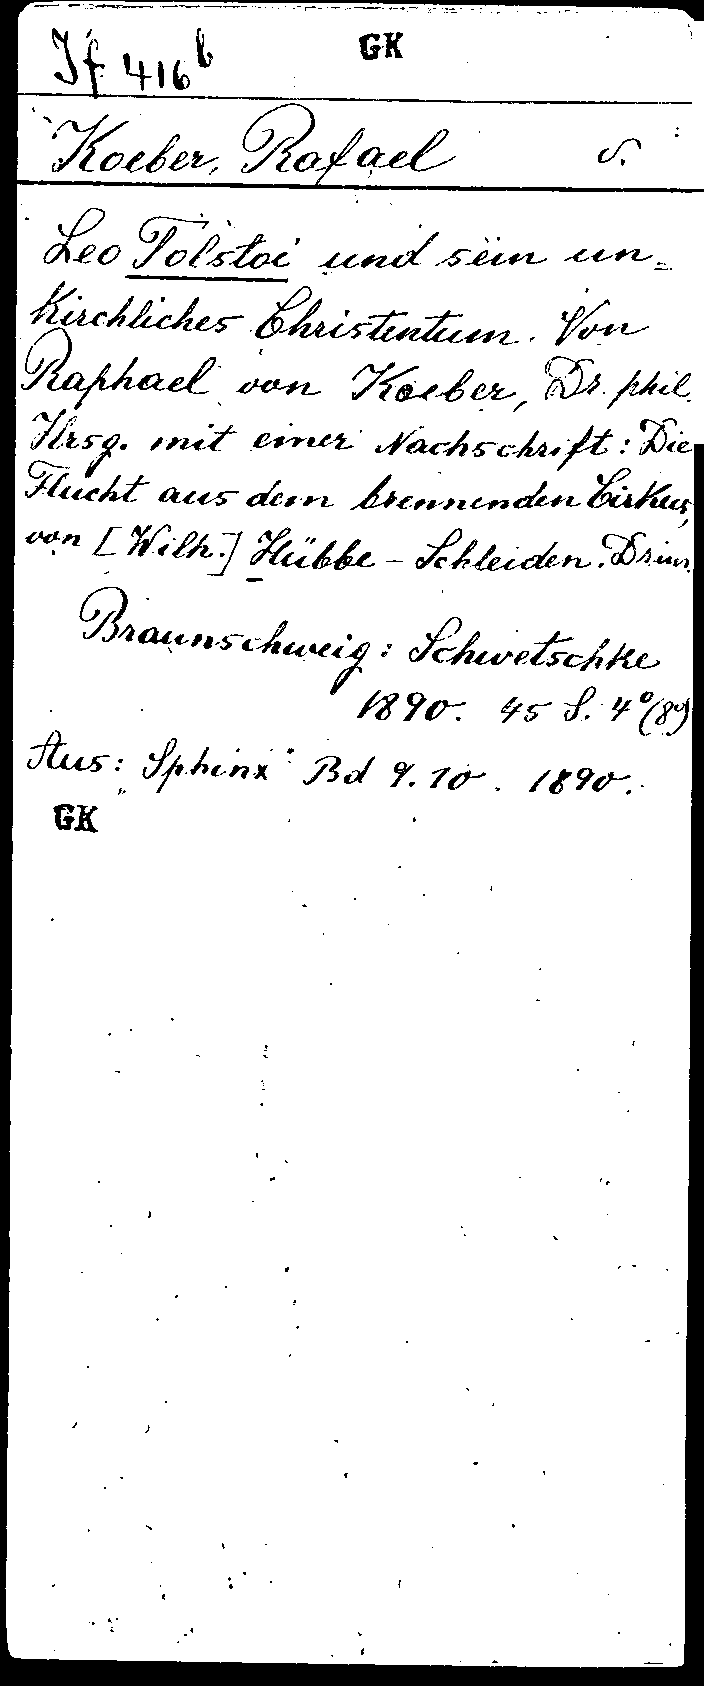 Jf 416b GK
Koeber, Rafael
Leo Tolstoi und sein un=
kirchliches Christentum. Von
Raphael von Koeber, Dr. phil.
Hrsg. mit einer Nachschrift: Die
Flucht aus dem brennenden Cirkus,
von [Wilh.] Hübbe-Schleiden. Drim.
Braunschweig: Schwetschke
1890. 45 S. 4°(8°)
Aus: „Sphinx" Bd 9.10. 1890.
GK